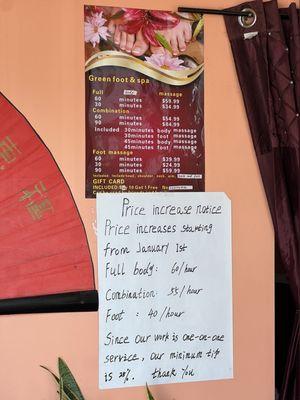 Green foot & spa
Full body massage
60 minutes $59.99
30 minutes $34.99
Combination
60 minutes $54.99
90 minutes $84.99
Included 30minutes body massage
30minutes foot massage
45minutes body massage
45minutes foot massage
Foot massage
60 minutes $39.99
30 minutes $24.99
90 minutes $59.99
GIFT CARD
10 Get 1 Free No
Price increase notice
Price increases starting
from January 1st
Full body: 60/hour
Combination: 55/hour
Foot : 40/hour
Since our work is one-on-one
service, our minimum tip
is 20%. thank you